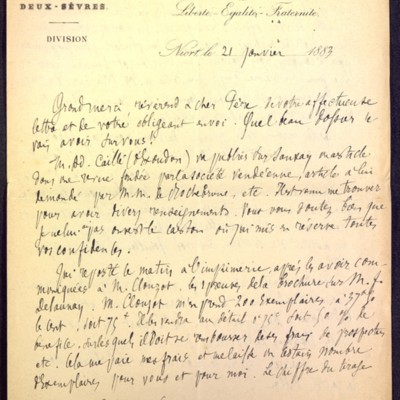 DEUX-SÈVRES.
Liberté-Egalité-Fraternité
DIVISION
Niort le 21 janvier 1883
Grand merci révérend & cher Père de votre affectueuse
lettre et de votre obligeant envoi. Quel beau dossier je
vais avoir sur vous !!
M. Ed. Caillé (d'Exoudun) va publier sur Souzay un article
dans une revue fondée par la société vendéenne, article à lui
demandé par M.M. de Rochebrune, etc. Il est venu me trouver
pour avoir divers renseignements. Vous vous doutez bien que
je ne lui ai pas ouvert le carton où j'ai mis en réserve toutes
vos confidences.
J'ai reporté ce matin à l'imprimerie, après les avoir com-
muniquées à M. Clouzot, les épreuves de la Brochure sur M. F.
Delaunay. M. Clouzot m'en prend 200 exemplaires à 37 50
le cent, soit 75 f. Il les vendra au détail 0,75 c. soit 50 % de
bénéfice, sur lesquels il doit se rembourser de ses frais de prospectus
etc. Cela me paie mes frais et me laisse un certain nombre
d'exemplaires pour vous et pour moi. Le chiffre du tirage